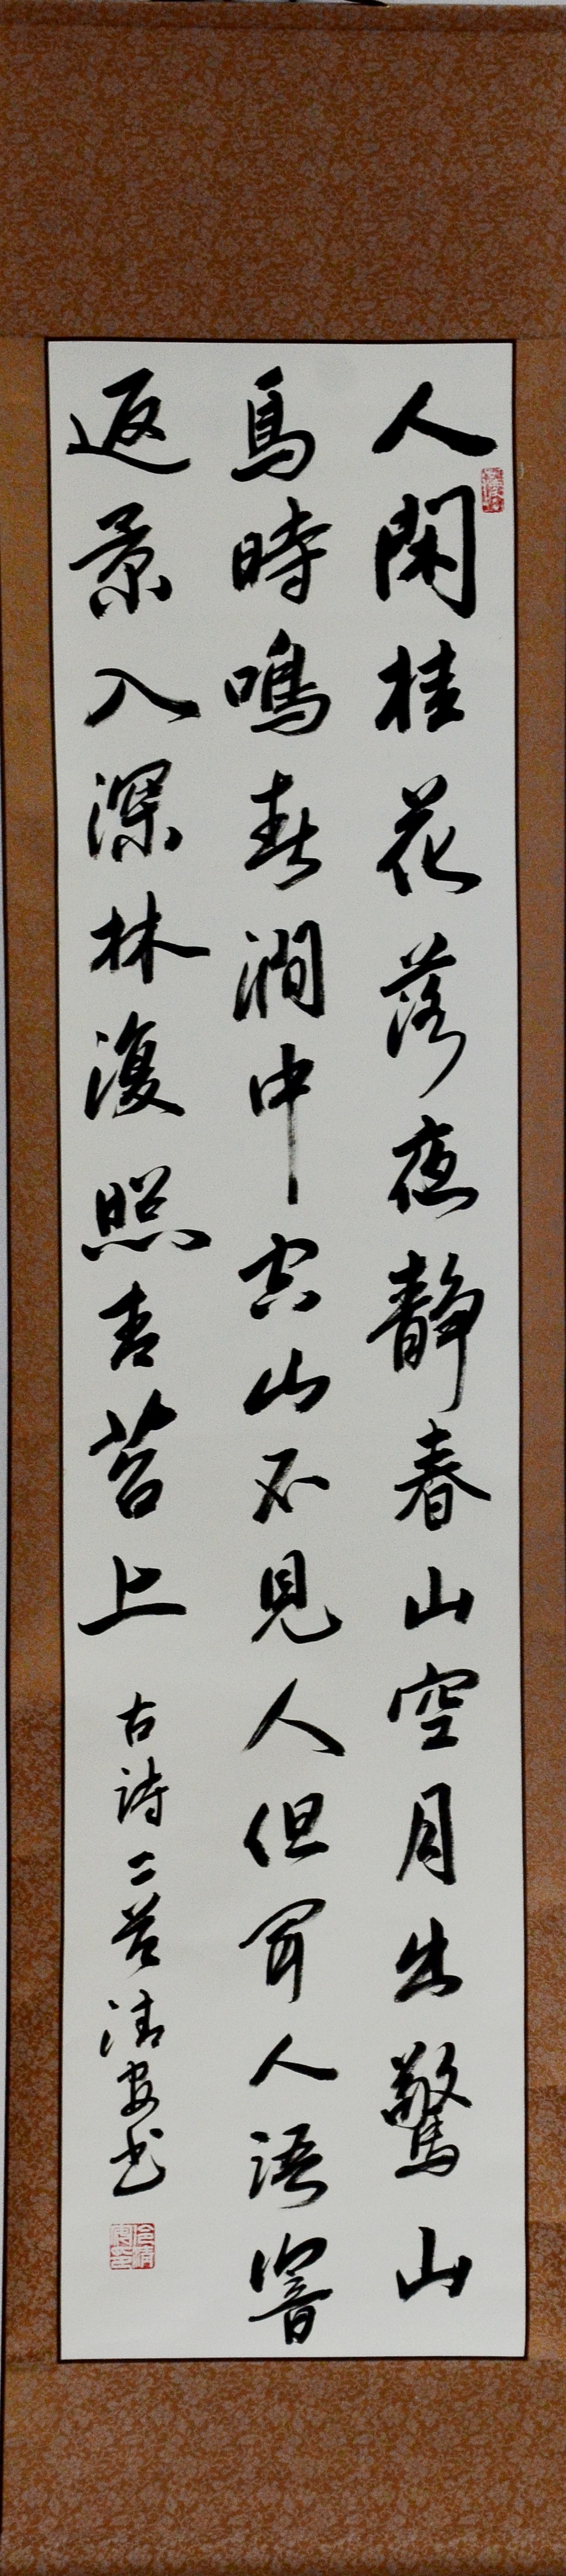 人閑桂花落夜靜春山空月出驚山
鳥時鳴春澗中空山不見人但聞人語響
返景入深林復照青苔上
古詩二首清安書